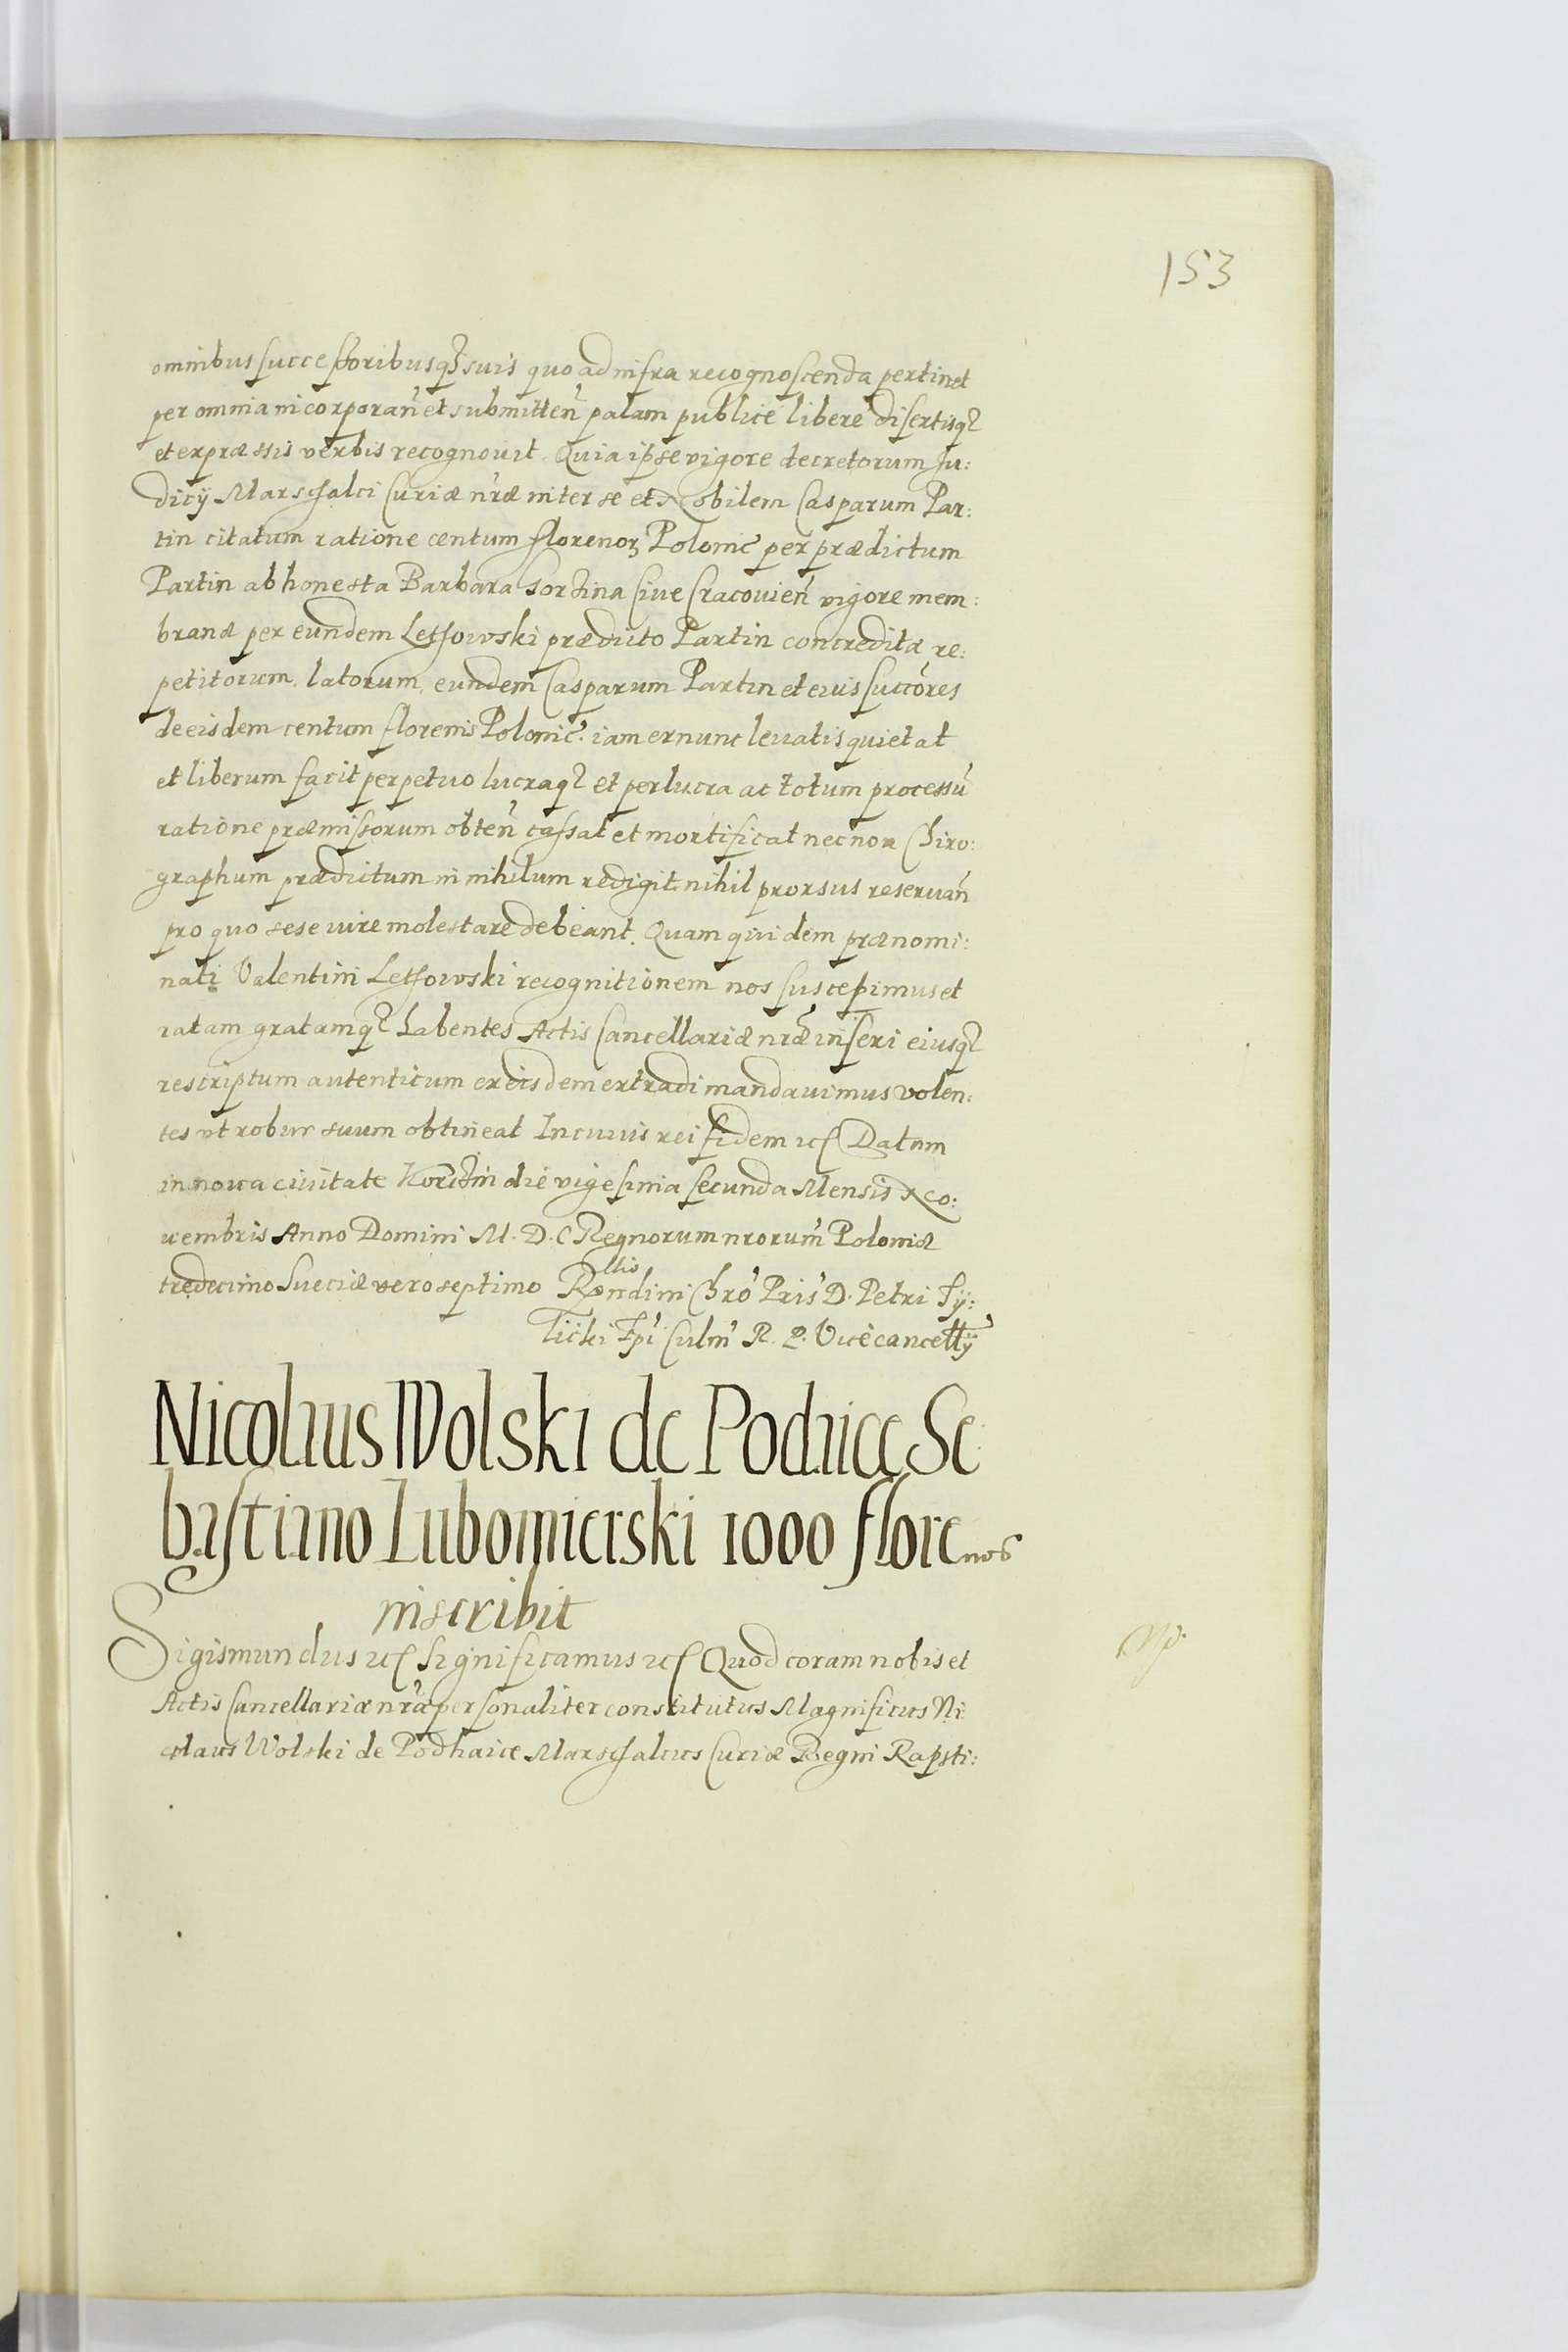 153
omnibus successoribusq̃ suis quo ad infra recognoscenda pertinet
per omnia incorporan̄ et submitten̄ palam publice libere disertisq̃
et expræssis verbis recognouit. Quia ipse vigore decretorum Ju:
dicij Marschalci Curiæ nr̃æ inter se et Nobilem Casparum Par:
tin citatum ratione centum florenoꝝ Polonic̃ per prædictum
Partin ab honesta Barbara Sorzina Ciue Cracouien̄ vigore mem:
branæ per eundem Letsowski prædicto Partin concreditæ re:
petitorum. latorum, eundem Casparum Partin et eius succõres
de eisdem centum florenis Polonic̃. iam ex nunc leuatis quietat
et liberum facit perpetuo lucraq̃ et perlucra ac totum processũ
ratione præmissorum obten̄ cassat et mortificat nec non Chiro:
graphum prædictum in nihilum redigit nihil prorsus reseruan̄
pro quo sese iure molestare debeant. Quam quidem prænomi:
nati Valentini Letsowski recognitionem nos suscepimus et
ratam gratamq̃ habentes Actis Cancellariæ nr̃æ inseri eiusq̃
rescriptum autenticum ex eisdem extradi mandauimus volen:
tes vt robur suum obtineat In cuius rei fidem etc Datum
in noua ciuitate Korczin die vigesima secunda Mensis No:
uembris Anno Domini M. D. C Regnorum nrorum̃ Poloniæ
tredecimo Sueciæ vero septimo Rñdini Chrõ Pris̃ D. Petri Ty:
llio
licki Epĩ Culm̃ R. P. Vicecancellij
Nicolaus Wolski de Podaice Se
bastiano Lubomierski 1000 florenos
inscribit
Sigismundus etc Significamus etc Quod coram nobis et
Actis Cancellariæ nr̃æ personaliter constitutus Magnificus Ni
colaus Wolski de Podhaice Marschalcus Curiæ Regni Rapsti: